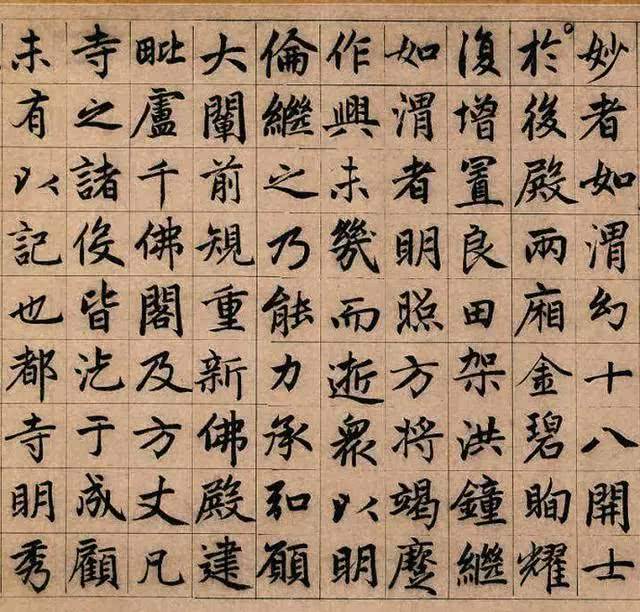 妙者如渭幻十八開士
於後殿兩廂金碧眴耀
復增置良田架洪鐘繼
如渭者明照方將竭麼
作興未幾而逝衆以明
倫繼之乃能力承弘願
大闡前規重新佛殿建
毗盧千佛閣及方丈凡
寺之諸役皆汔于成顧
未有以記也都寺明秀